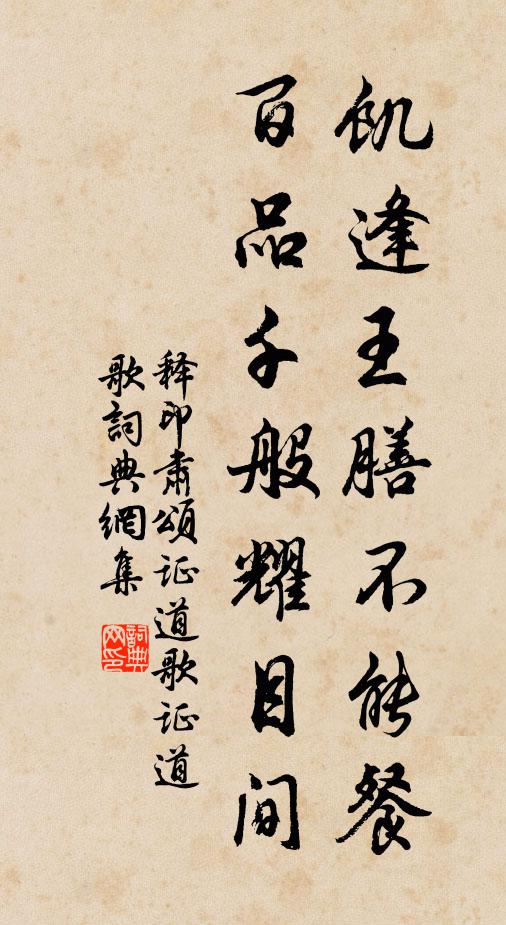 飢逢王膳不能餐
百品千般耀目间
释印肃颂证道歌证道
歌詞典網集
詞典
网印